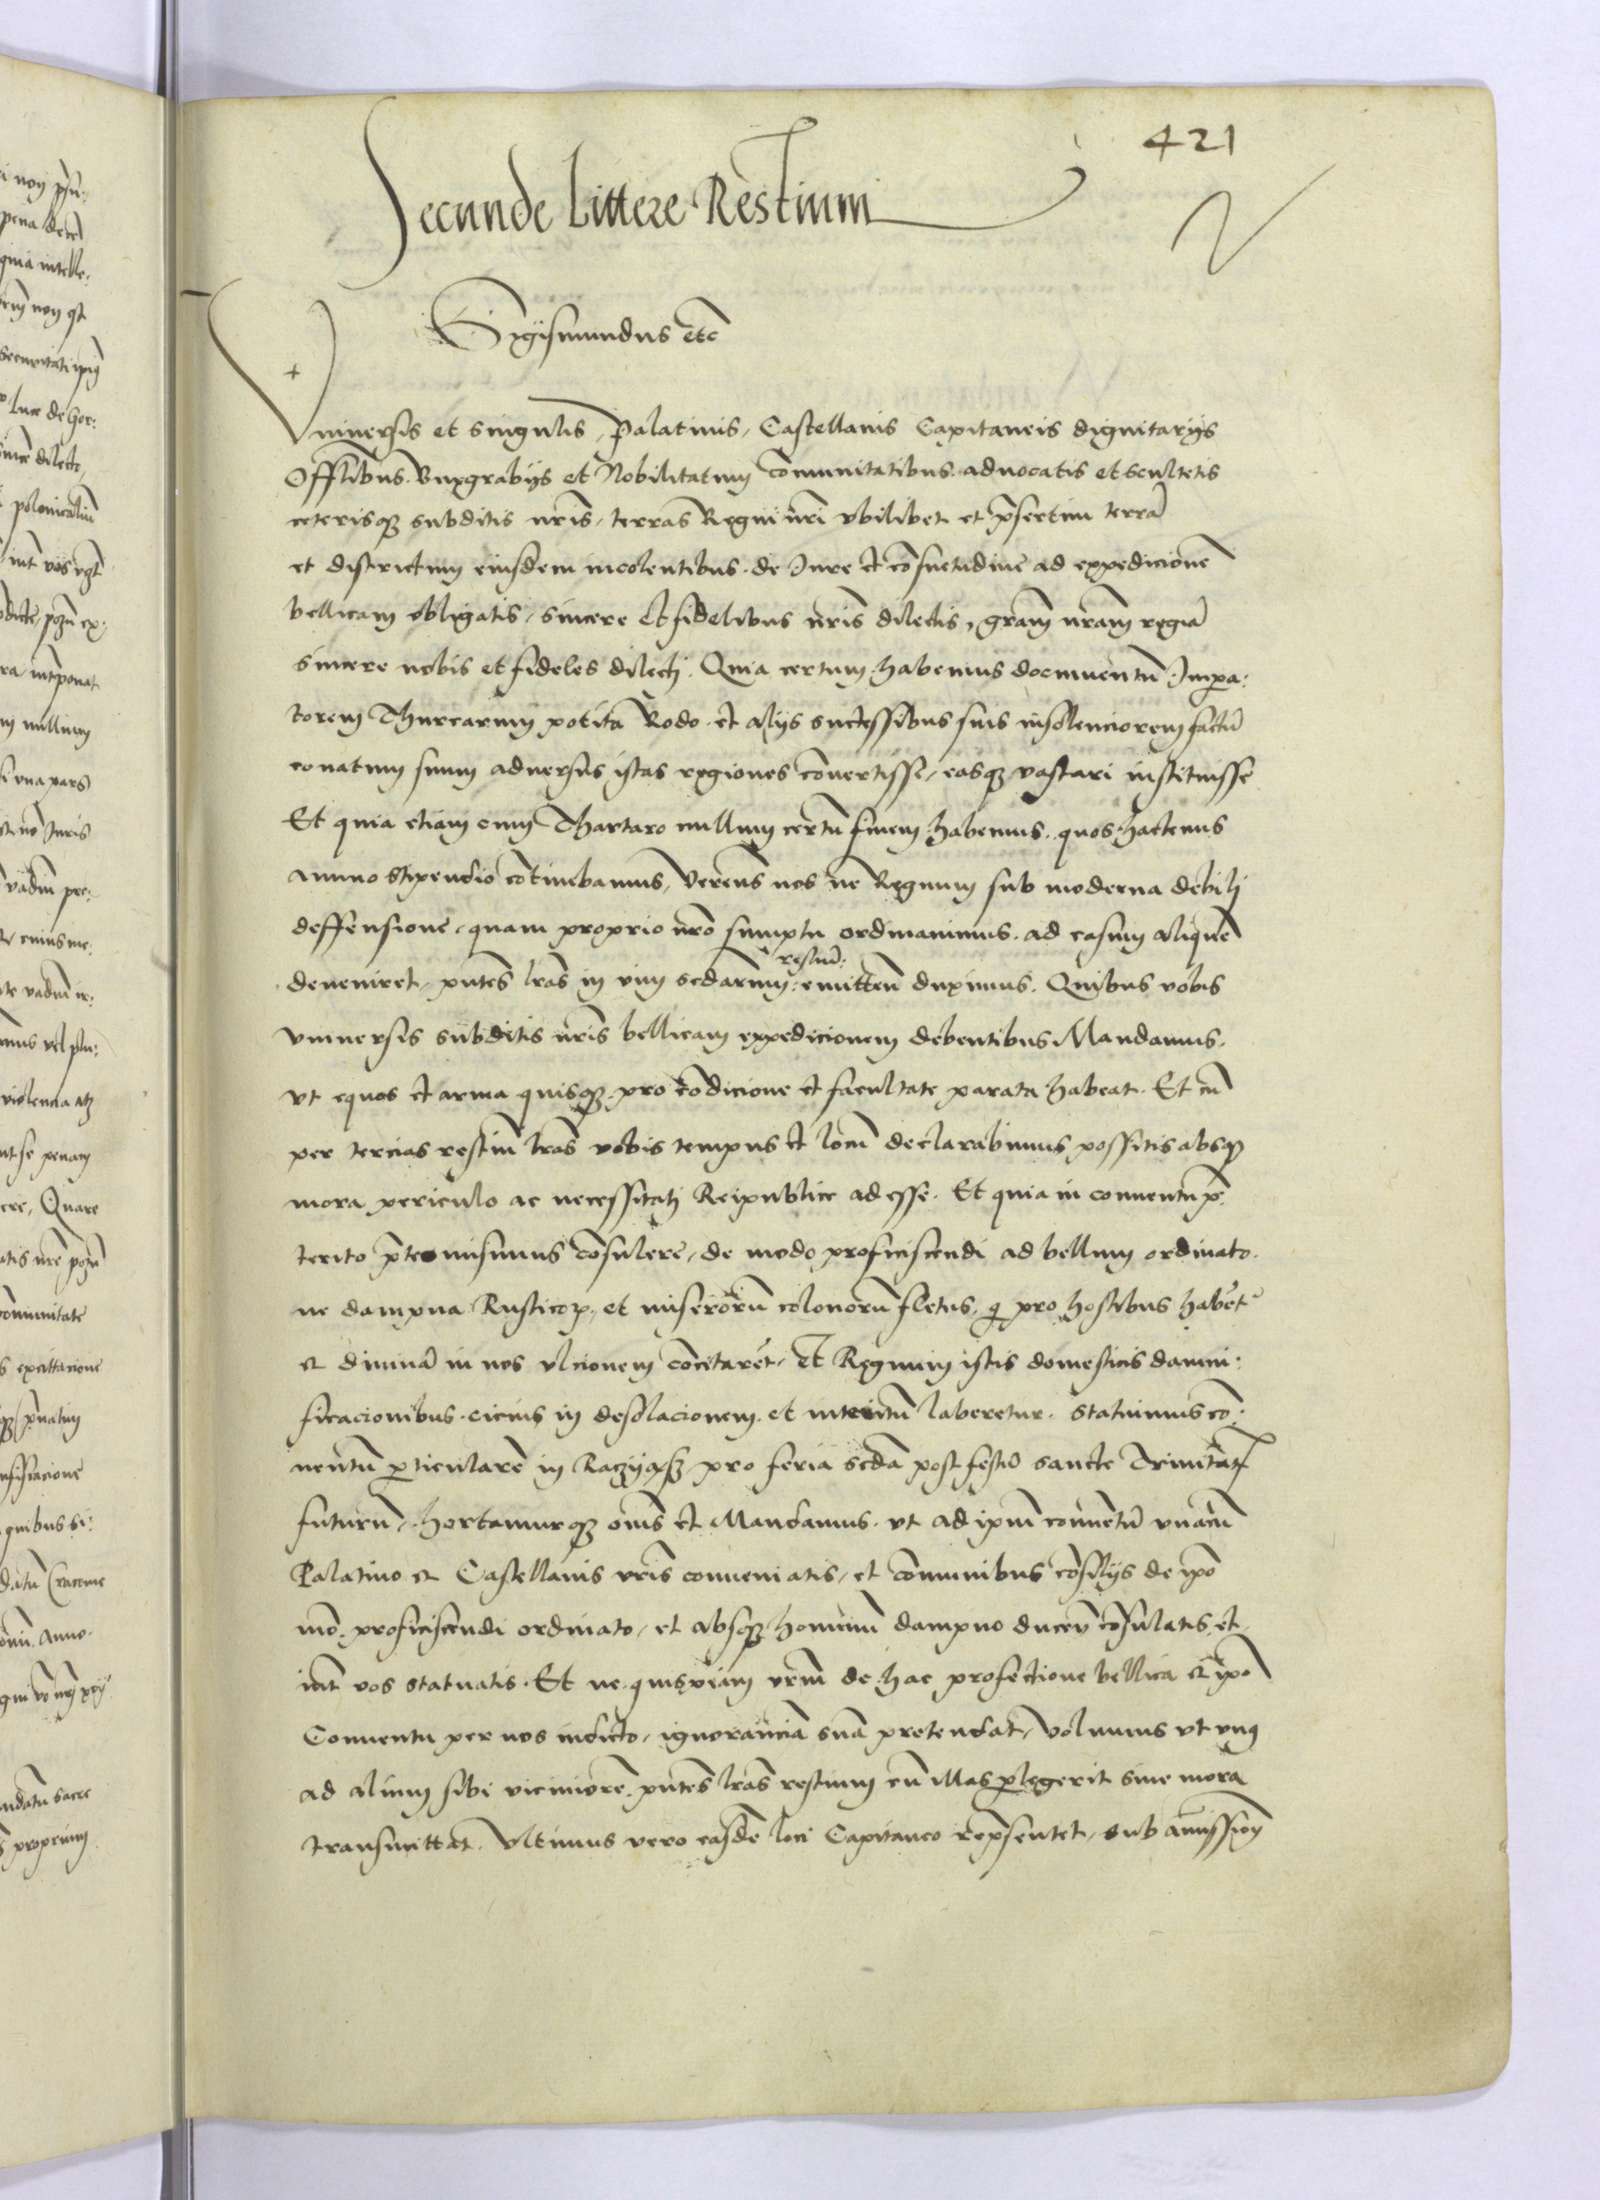 421
Secunde Littere Restium
Sigismundus etc
Vniuersis et singulis, Palatinis, Castellanis Capitaneis dignitarijs
Offlibus. Burgrabijs et Nobilitatum cōmunitatibus. aduocatis et scultetis
ceterisqꝫ subditis nr̄is, terras Regni nr̄i vbilibet et p̄sertim terrā
et districtum eiusdem incolentibus. de Iure et cōsuetudine ad expedicionē
bellicam obligatis, sincere et fidelibus nr̄is dilectis, gram̄ nram̄ regiā
sincere nobis et fideles dilecti. Quia certum habemus documentū. Impa:
torem Thurcarum potita Rodo. et alijs successibus suis insolenciorem factū
conatum suum aduersus istas regiones cōuertisse, easqꝫ vastari instituisse
Et quia etiam cum Thartaro nullum certū finem habemus. quos hactenus
annuo stipendio cōtinebamus, verens nos ne Regnum sub moderna debili
deffensione, quam proprio nr̄o sumptu ordinauimus. ad casum aliquē
restiū:
deueniret, pn̄tes lr̄as in vim scd̄arum: emitten̄ duximus. Quibus vobis
vniuersis subditis nr̄is bellicam expedicionem debentibus Mandamus.
vt equos et arma quisqꝫ pro cōdicione et facultate parata habeat. Et cū
per tercias restiū lr̄as vobis tempus et locū declarabimus possitis absqꝫ
mora periculo ac necessitati Reipublice adesse. Et quia in conuentu p̄
terito p̄termisimus cōsulere, de modo proficiscendi ad bellum ordinato.
ne dampna Rusticoꝝ, et miserorū colonorū fletus, q̄ pro hostibus habēt
et diuinā in nos vlcionem cōcitarēt, et Regnum istis domesticis damni:
ficacionibus. cicius in desolacionem. et interitū laberetur. statuimus cō:
uentū p̱ticularē in pro feria scd̄a post festū sancte Trinitatꝭ
futurū, hortamurqꝫ om̄s et Mandamus. vt ad ipm̄ conuentū vnacū
Palatino et Castellanis vr̄is conueniatis, et cōmunibus cōsilijs de ipō
mō. proficiscendi ordinato, et absqꝫ hominū dampno ducen̄ cōsulatis et
int̄ vos statuatis. Et ne quispiam vrm̄ de hac profectione bellica et ipō
Conuentu per nos indicto, ignoranciā suā pretendat, volumus vt vnꝰ
ad alium sibi viciniorē. pn̄tes lr̄as restium cū illas p̱legerit sine mora
transmittat. Vltimus vero easdē loci Capitaneo rep̄sentet, sub amissiōn